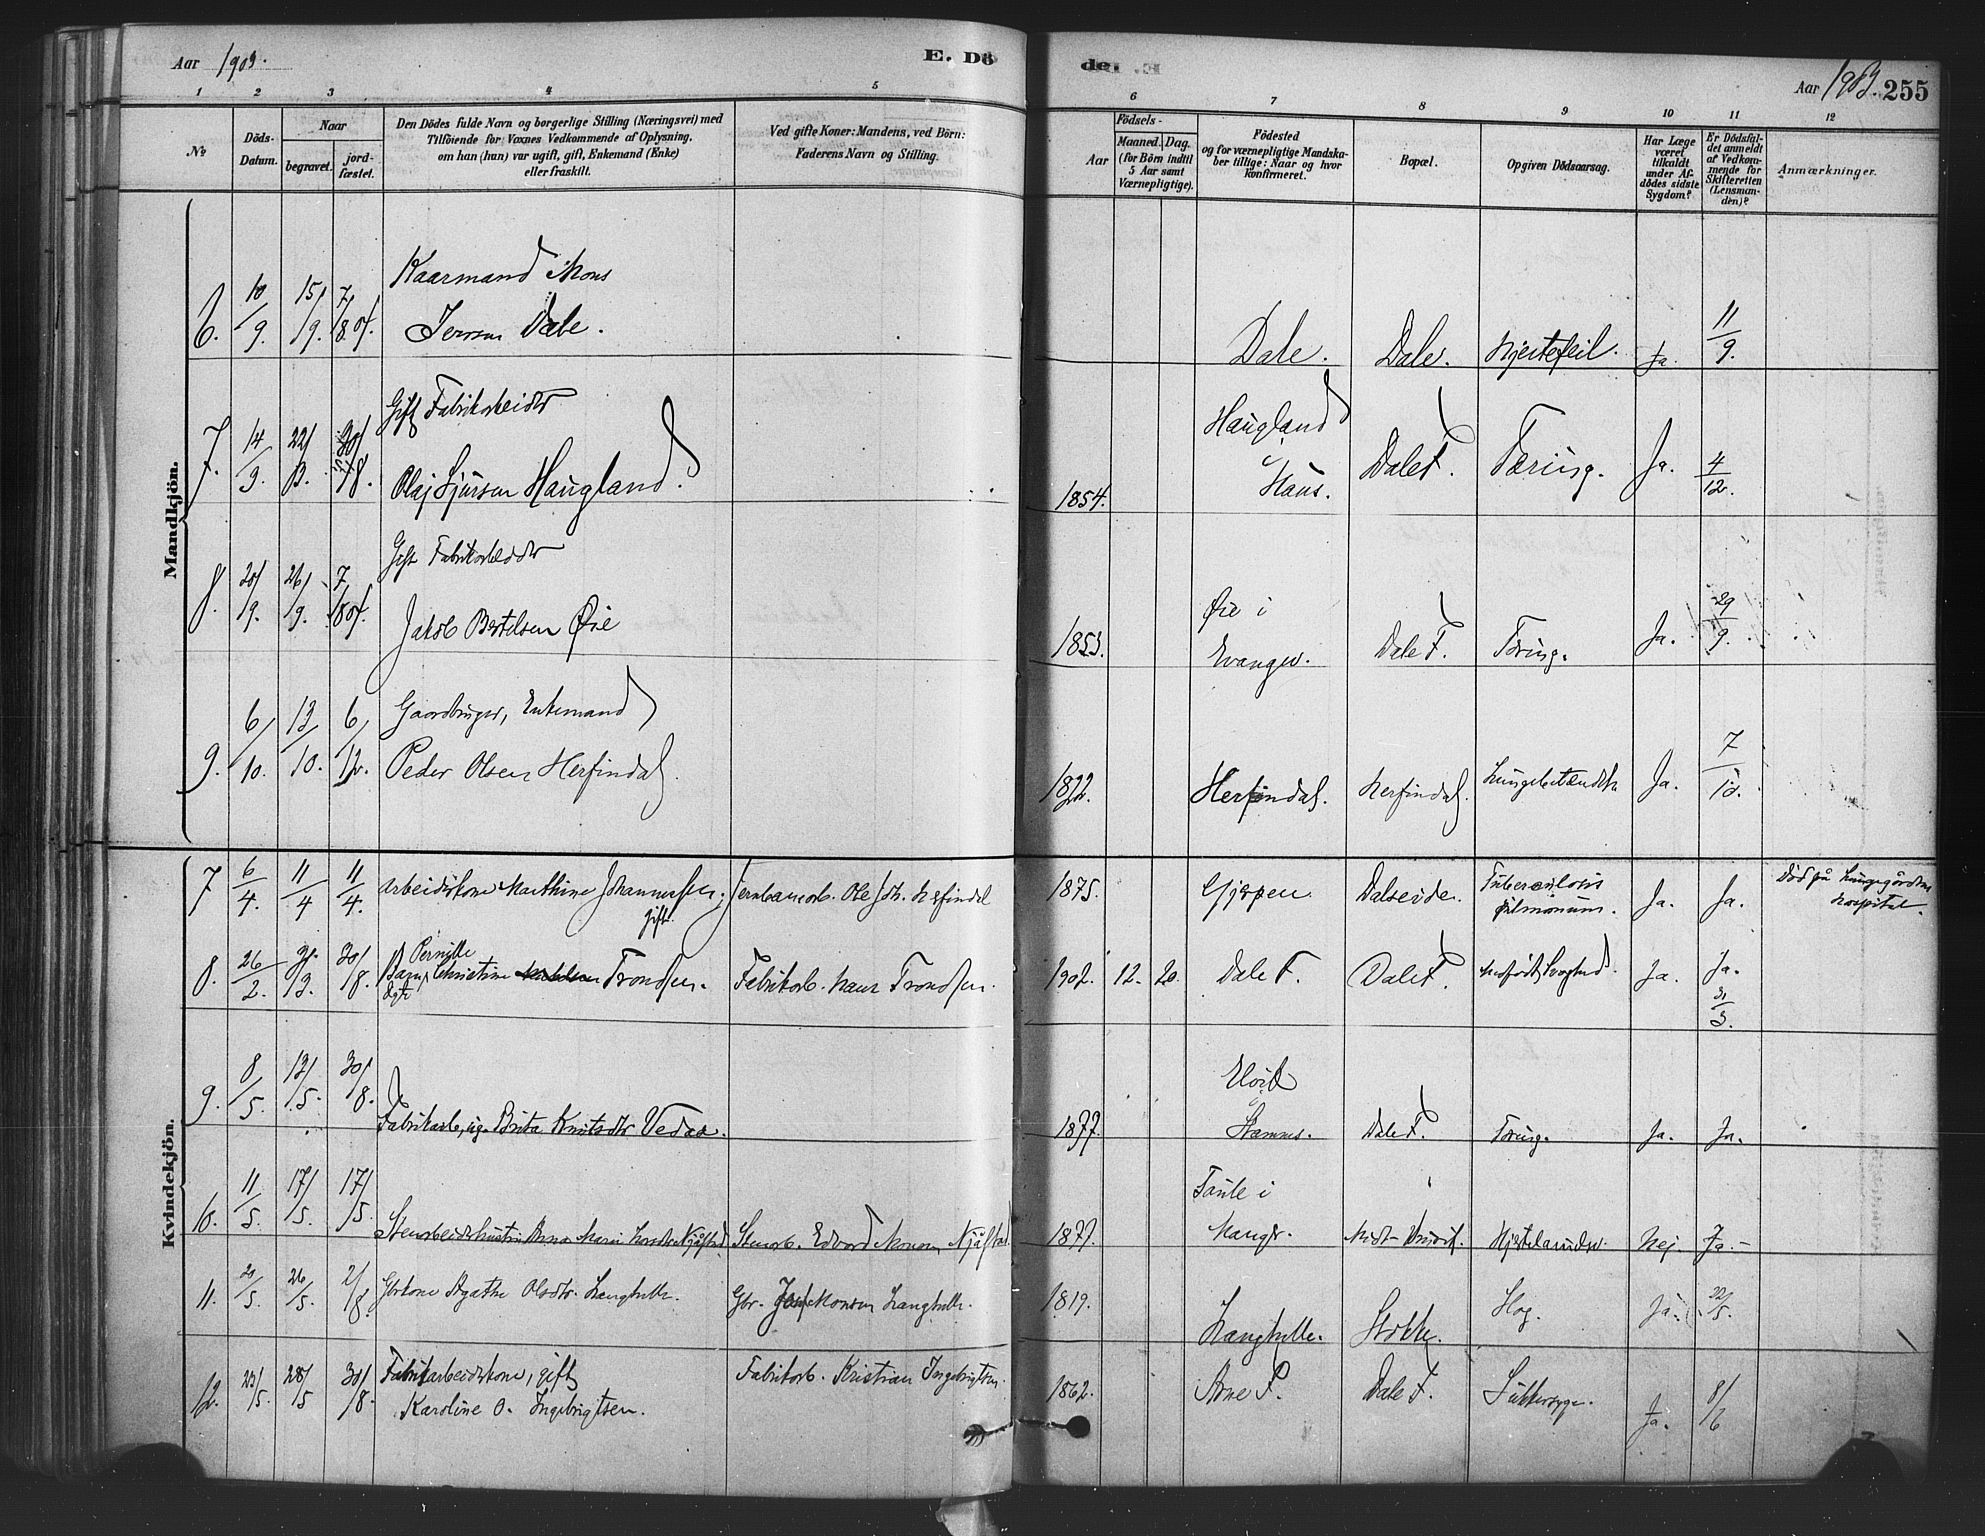 Aar 1903.
E. Dö
de
Aar 1903. 255
1 2 3 4 5
6 7 8 9 10 11 12
No
Döds-Datum.
Naar
begravet.
jord-fæstet.
Den Dödes fulde Navn og borgerlige Stilling (Næringsvei) med
Tilföiende for Voxnes Vedkommende af Oplysning,
om han (hun) var ugift, gift, Enkemand (Enke)
eller fraskilt.
Ved gifte Koner: Mandens, ved Börn:
Faderens Navn og Stilling.
Födsels-
Aar
Maaned. Dag.
(for Börn indtil
5 Aar samt
Værnepligtige).
Födested
og for værnepligtige Mandska-
ber tillige: Naar og hvor
konfirmeret.
Bopæl.
Opgiven Dödsaarsag.
Har Læge
været
tilkaldt
under Af-
dödes sidste
Sygdom?
Er Dödsfal-
det anmeldt
af Vedkom-
mende for
Skifteretten
(Lensman-
den)?
Anmærkninger.
Mandkjön.
Kaarmand Mons
6. 10/9. 15/9. 7/8 04. Iversen Dale. Dale. Dale. Hjertefeil. Ja. 11/9.
Gift Fabrikarbeider Haugland
7. 14/9. 22/ Olaf Sjursen Haugland. 1854. Haus. Dale F. Tæring. Ja. 4/12.
Gift Fabrikarbeider Øie i
8. 20/9. 26/9. 7/8 04. Jakob Bertelsen Øie 1853. Evanger. Dale F. Tæring. Ja. 29/9.
Gaardbruger, Enkemand
9. 6/10. 13/10. 6/12. Peder Olsen Herfindal. 1822. Herfindal. Herfindal. Lungebetændelse Ja. 7/10.
Kvindekjön.
7 6/4. 11/4 11/4. Arbeiderkone Marthine Johannessen; gift. Jernbanearb. Ole Joh. Herfindal 1875. Gjerpen. Dalseide. Tuberculosis pulmonum. Ja. Ja. Död på Lungegårdens hospital.
8. 26/2. 30/8. Barn, ægte Pernille Christine Trondsen. Fabrikarb. Hans Trondsen. 1902. 12. 20. Dale F. Dale F. Medfödt Svaghed. Ja. Ja. 31/3.
9. 8/5. 13/5. 30/8. Fabrikarb., ug. Brita Knutsdtr Vedaa. 1877. Hamre. Dale F. Tæring. Ja. Ja.
10. 11/5. 17/5. 17/5. Stenarbeiderhustru Anna Marie Njåstad. Stenarb. Edvard Monsen Njåstad. 1877. Manger. Hjertelammelse. Nej. Ja.
11. 20/5. 26/5. 2/8. Gbrkone Agathe Olsdtr. Langhelle. Gbr. Monsen Langhelle. 1819. Langhelle. Stokke. Slag. Ja. 22/5.
12. 23/5. 28/5 30/8. Fabrikarbeiderkone, gift Karoline O. Ingebrigtsen. Fabrikarb. Kristian Ingebrigtsen. 1862. Arne F. Dale F. Sukkersyge. Ja. 8/6